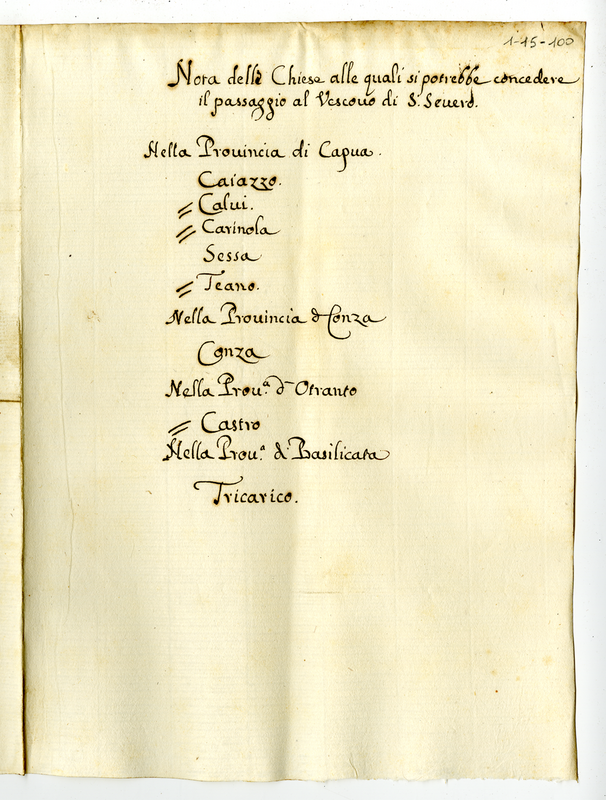 1-15-100
Nota delle Chiese alle quali si potrebbe concedere
il passaggio al Vescouo di S. Seuero.
Nella Prouincia di Capua.
Caiazzo.
= Calui.
= Carinola
Sessa
= Teano.
Nella Prouincia d Conza
Conza
Nella Prou.ª d'Otranto
= Castro
Nella Prou.ª d' Basilicata
Tricarico.